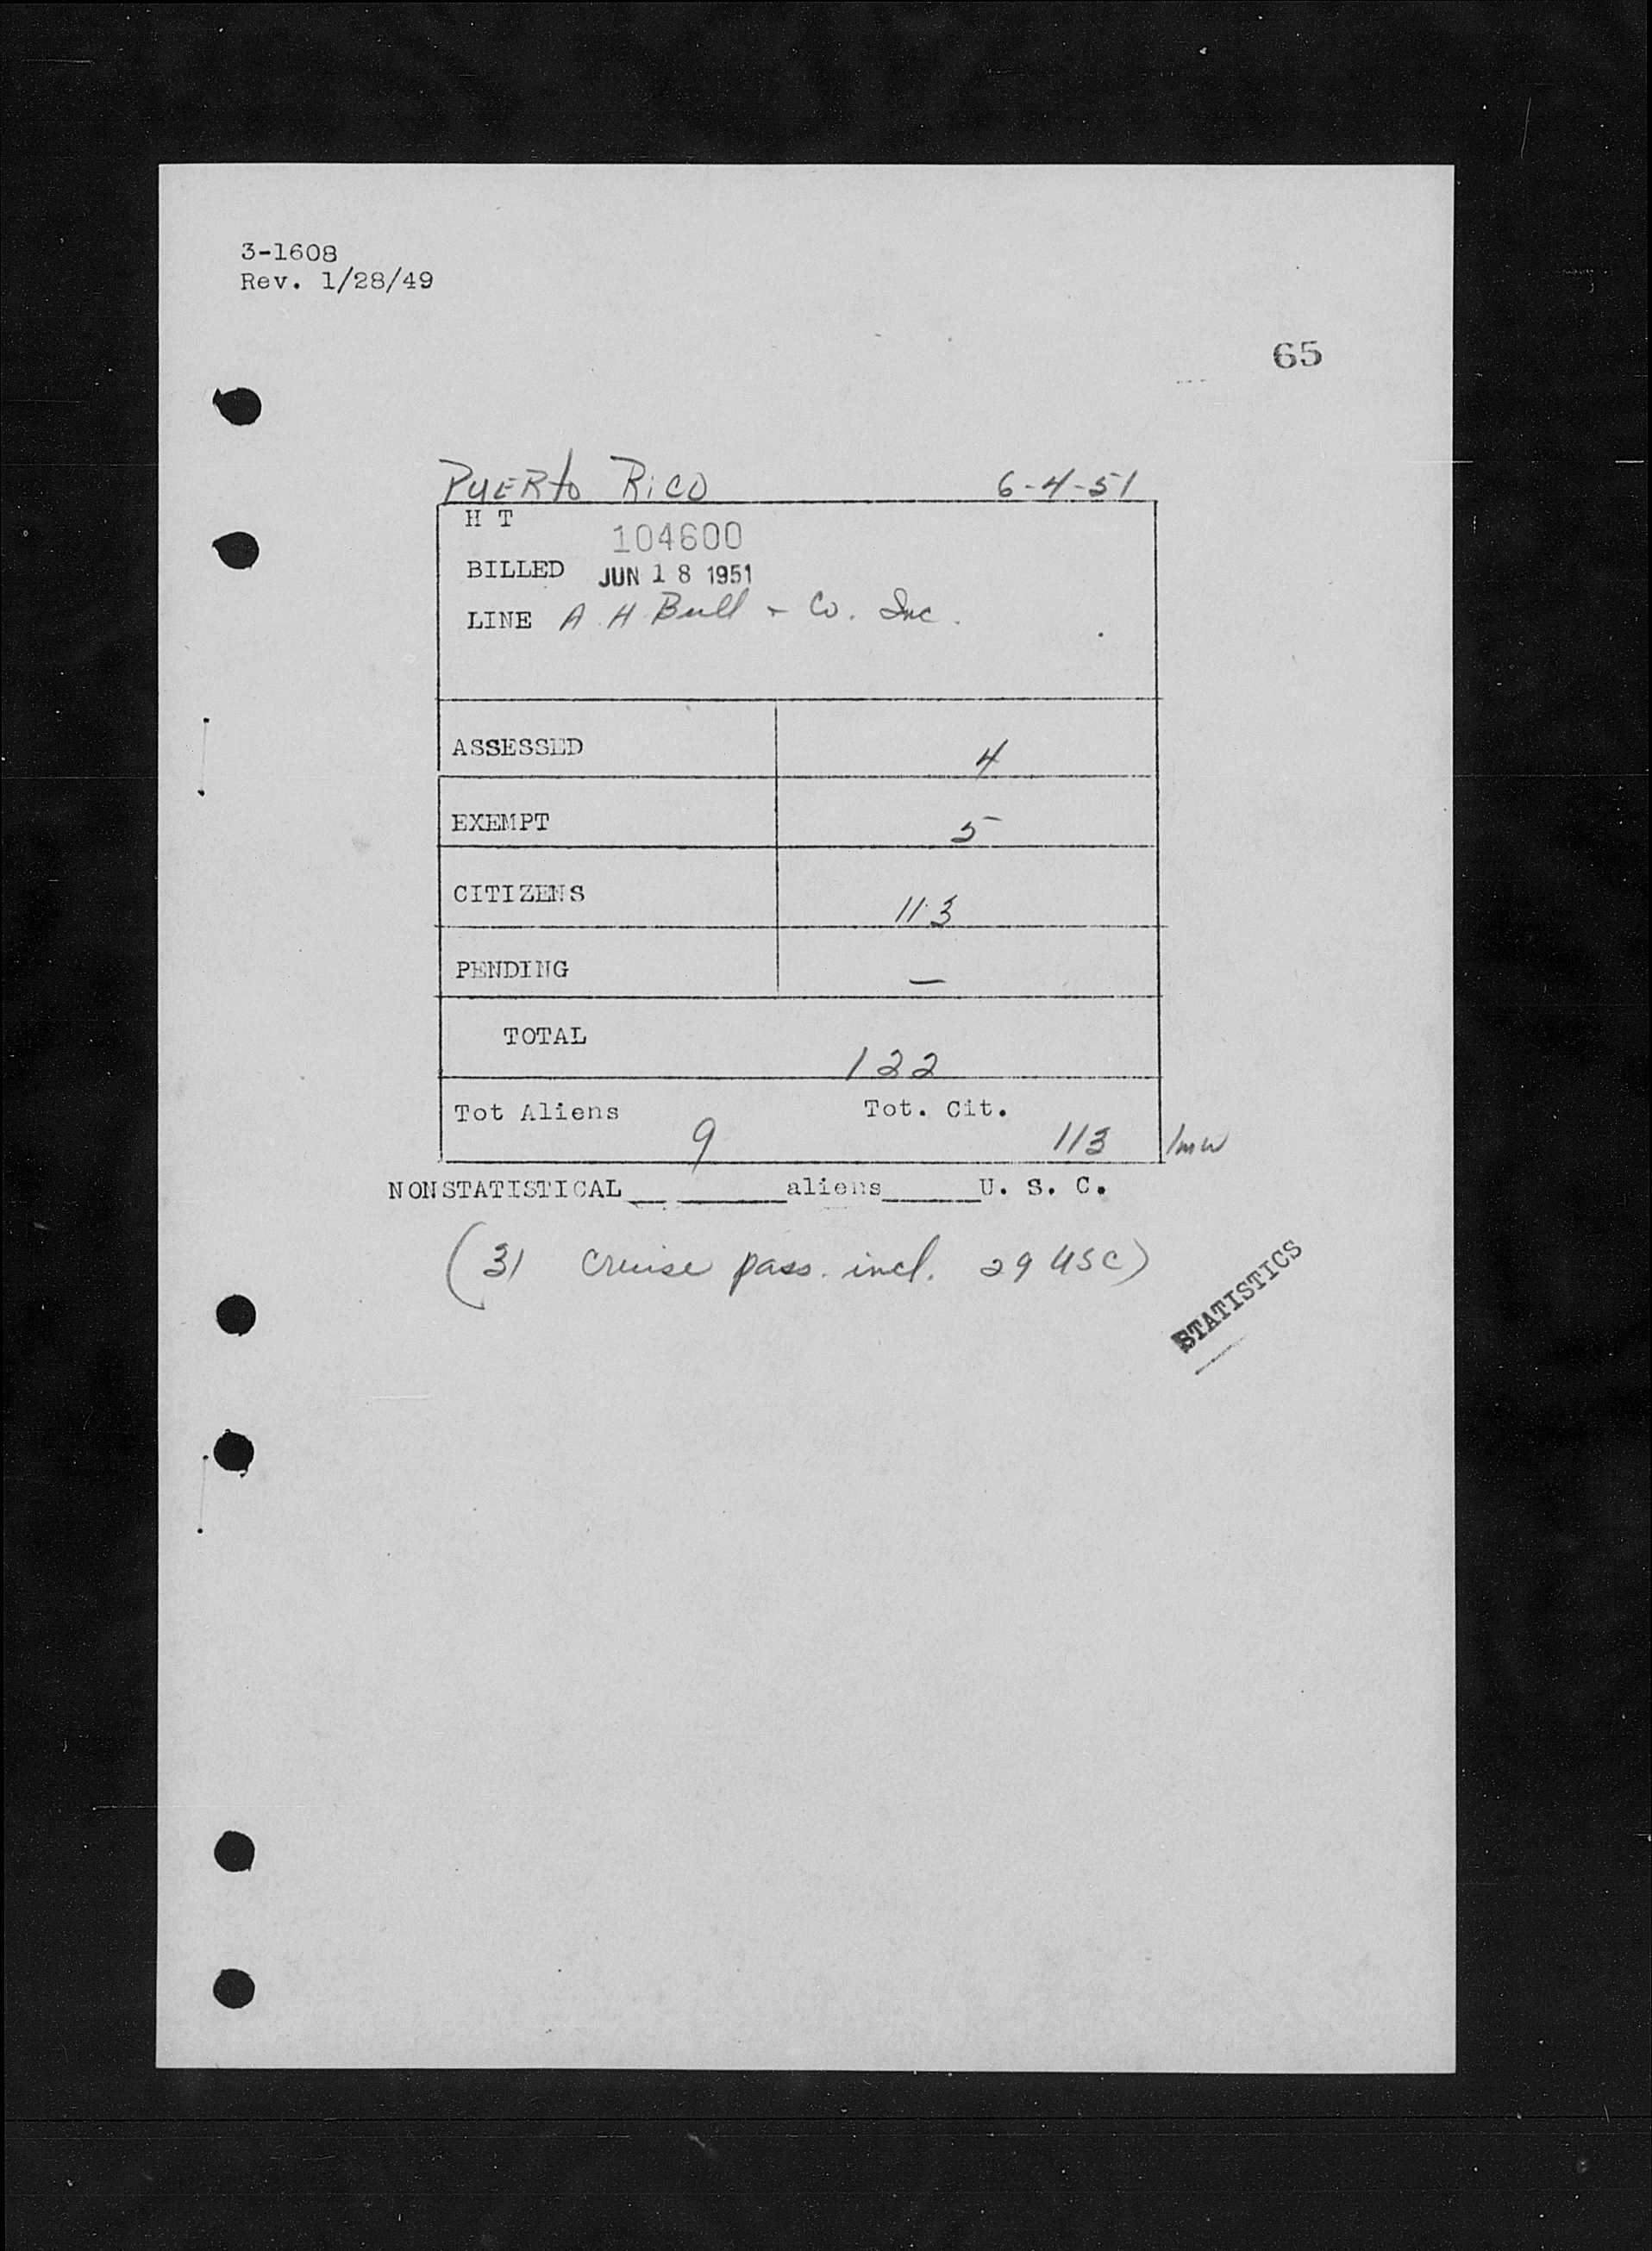 3-1608
Rev. 1/28/49
65
PUERto RiCO 6-4-51
H T 104600
BILLED JUN 18 1951
LINE A. H. Bull & Co. Inc.
ASSESSED 4
EXEMPT 5
CITIZENS 113
PENDING —
TOTAL
122
Tot Aliens 9 Tot. Cit. 113 /mw
NONSTATISTICAL__ ______aliens______U. S. C.
(31 Cruise pass. incl. 29 USC)
STATISTICS